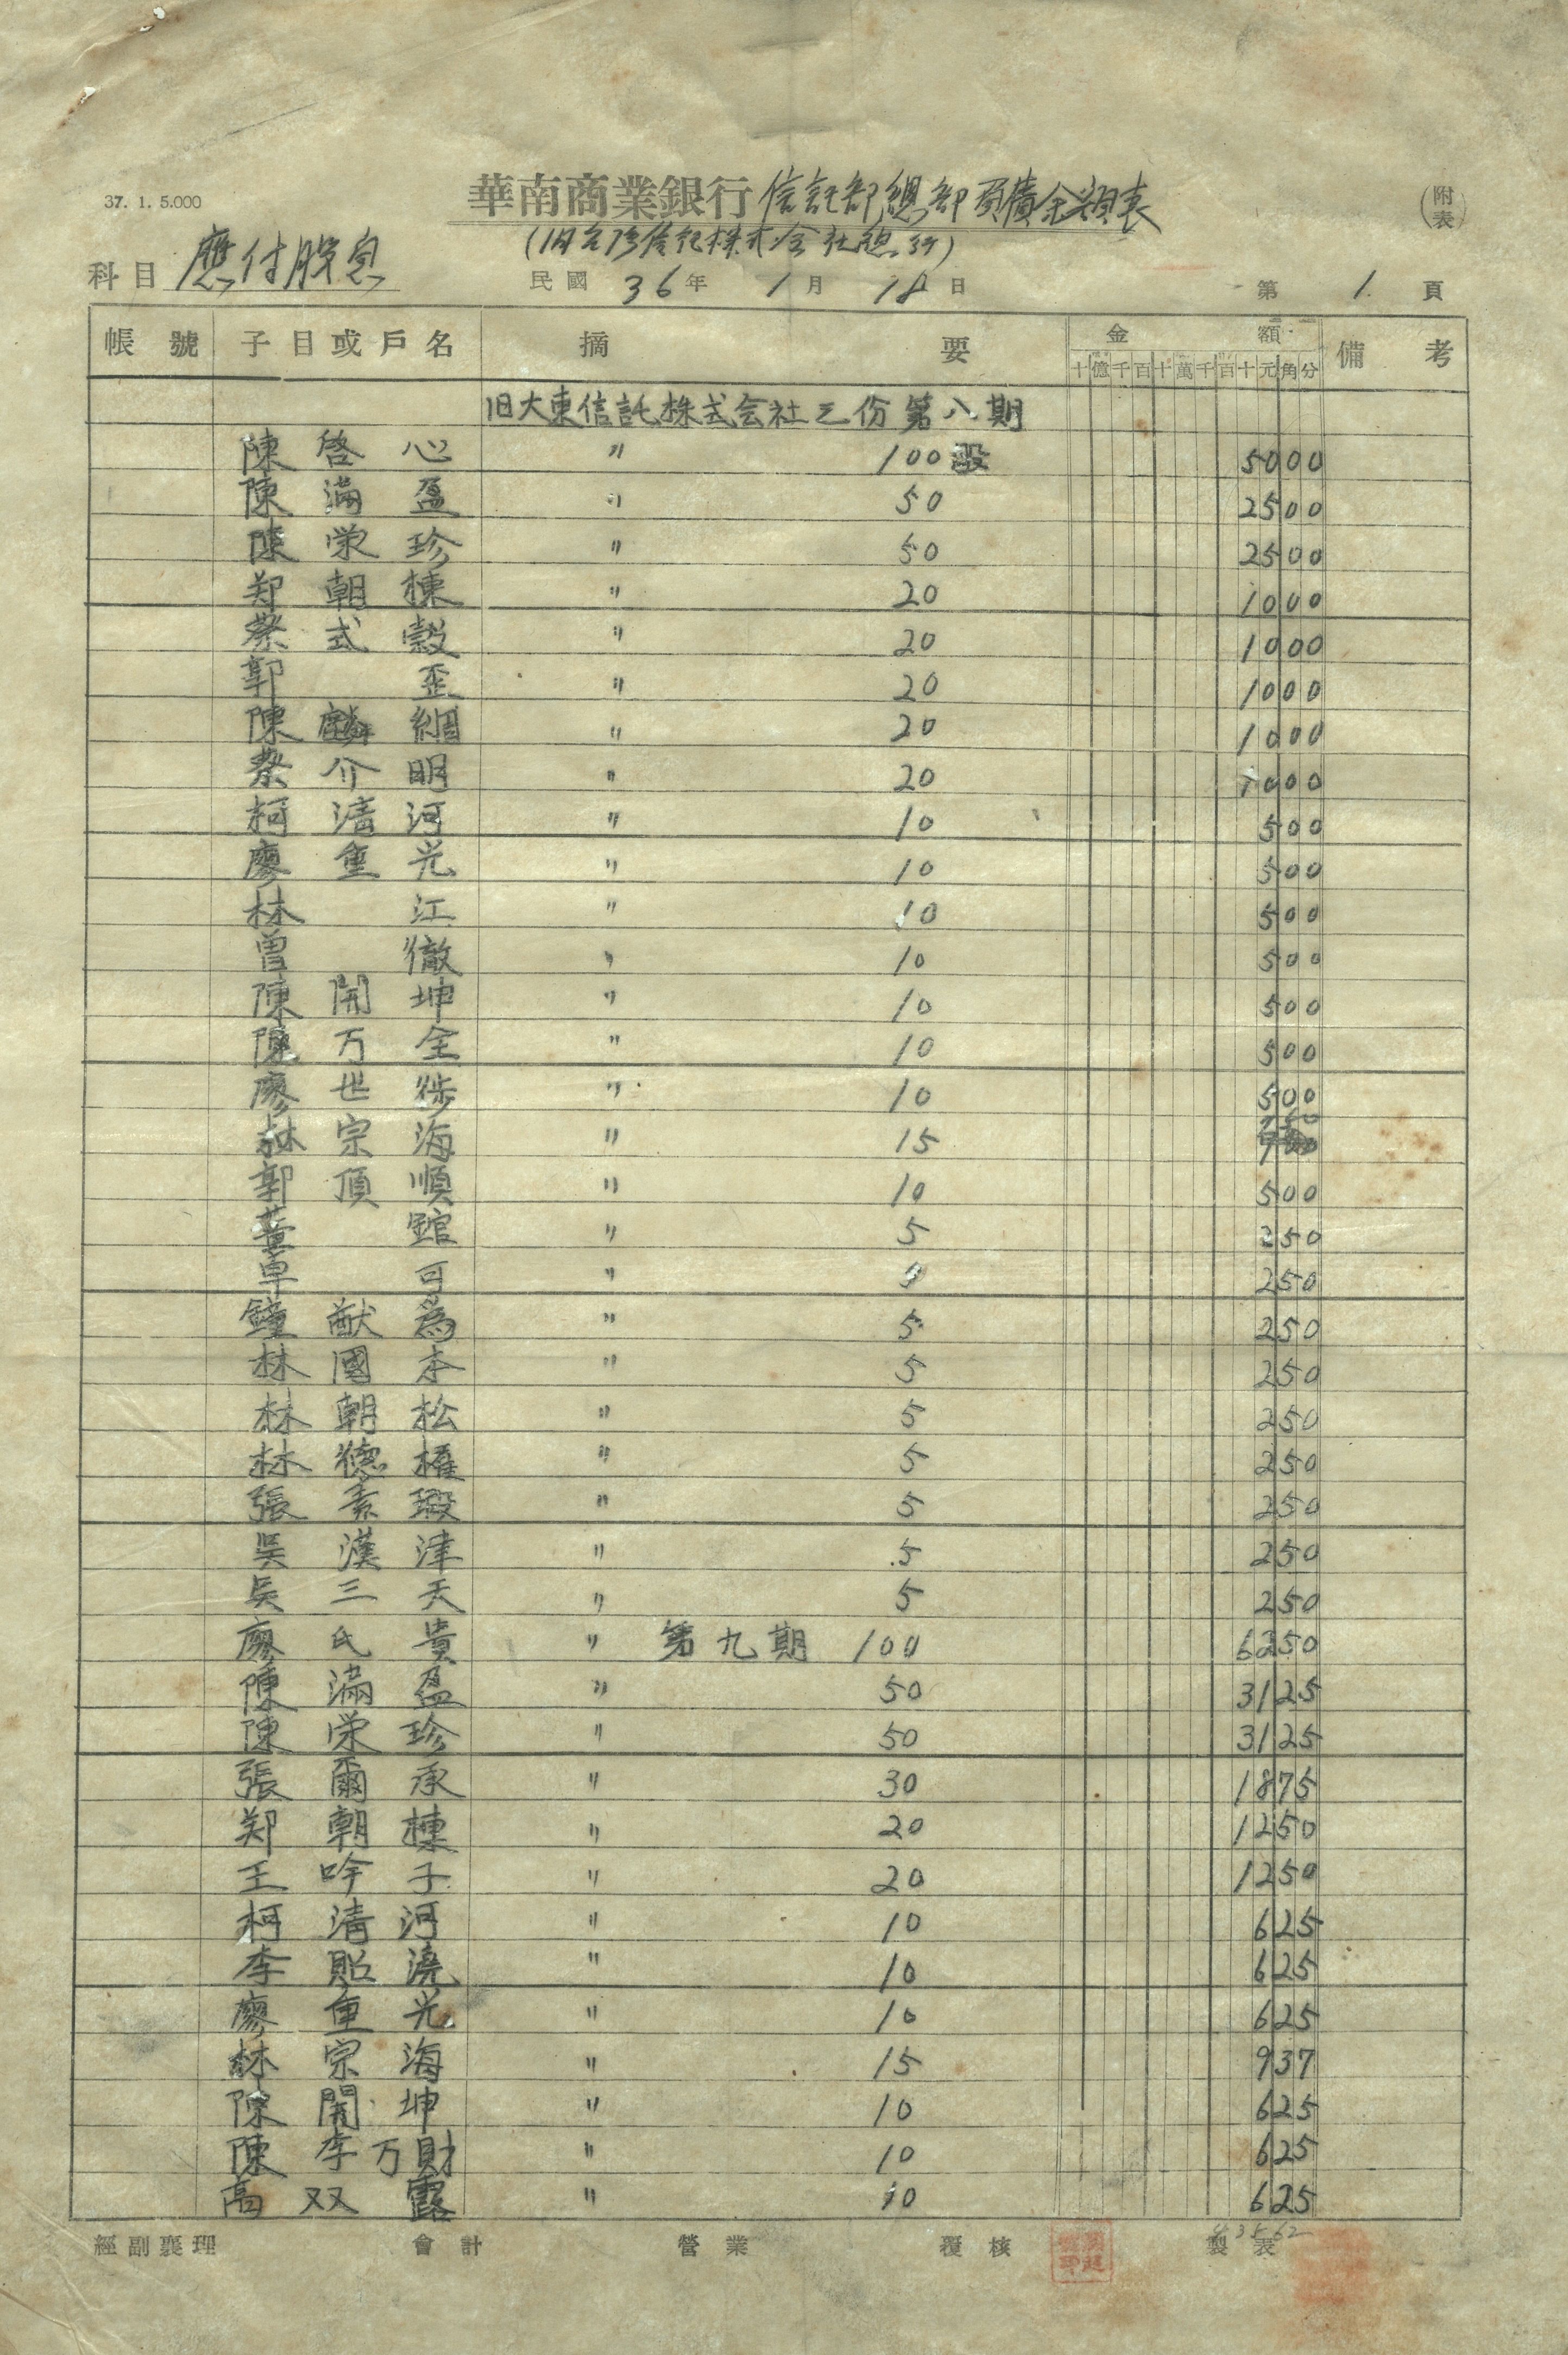 37. 1. 5.000
華南商業銀行信託部總部負債余額表
(附表)
(旧台湾信託株式会社總行)
科目 應付股息
民國 36年 1月 18日
第 1 頁
帳號 子目或戶名 摘要 金額 備考
十億千百十萬千百十元角分
旧大東信託株式会社之份第八期
陳啓心 〃 100股 5000
陳滿盈 〃 50 2500
陳栄珍 〃 50 2500
郑朝棟 〃 20 1000
蔡式穀 〃 20 1000
郭歪 〃 20 1000
陳麟綢 〃 20 1000
蔡介明 〃 20 1000
柯清河 〃 10 500
廖重光 〃 10 500
林江 〃 10 500
曽徹 〃 10 500
陳開坤 〃 10 500
陳万全 〃 10 500
廖世 〃 10 500
林宗海 〃 15
郭頂順 〃 10 500
董舘 〃 5 250
卓可 〃 250
鐘猷為 〃 5 250
林國本 〃 5 250
林朝松 〃 5 250
林德權 〃 5 250
張素 〃 5 250
吳漢津 〃 5 250
吳三天 〃 5 250
廖氏貴 〃 第九期 100 6250
陳滿盈 〃 50 3125
陳栄珍 〃 50 3125
張爾承 〃 30 1875
郑朝棟 〃 20 1250
王吟子 〃 20 1250
柯清河 〃 10 625
李貽澆 〃 10 625
廖重光 〃 10 625
林宗海 〃 15 937
陳開坤 〃 10 625
陳李万財 〃 10 625
高双露 〃 10 625
經副襄理 會計 營業 覆核 製表